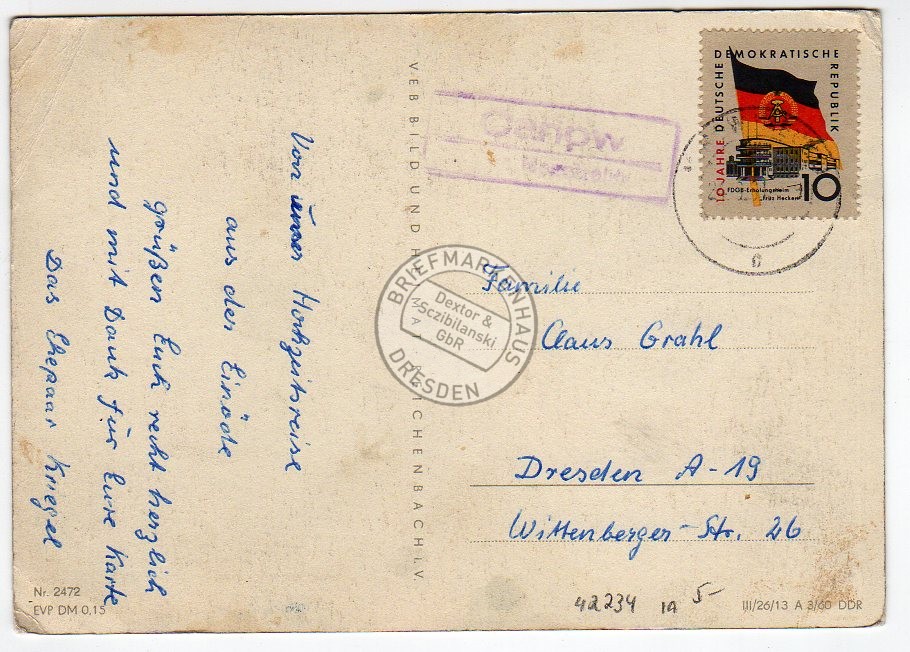 Von unser Hochzeitsreise
aus der Einöde
grüßen Euch recht herzlich
und mit Dank für Eure Karte
Das Ehepaar Kriegel
Nr. 2472
EVP DM 0,15
VEB BILD UND H
CHENBACH I. V.
BRIEFMARKENHAUS
Dextor &
Sczibilanski
GbR
DRESDEN
Canow
10 JAHRE DEUTSCHE DEMOKRATISCHE REPUBLIK
FDGB-Erholungsheim
„Fritz Heckert"
10
c
Familie
Claus Grahl
Dresden A-19
Wittenberger-Str. 26
42234 1A 5-
III/26/13 A 3/60 DDR